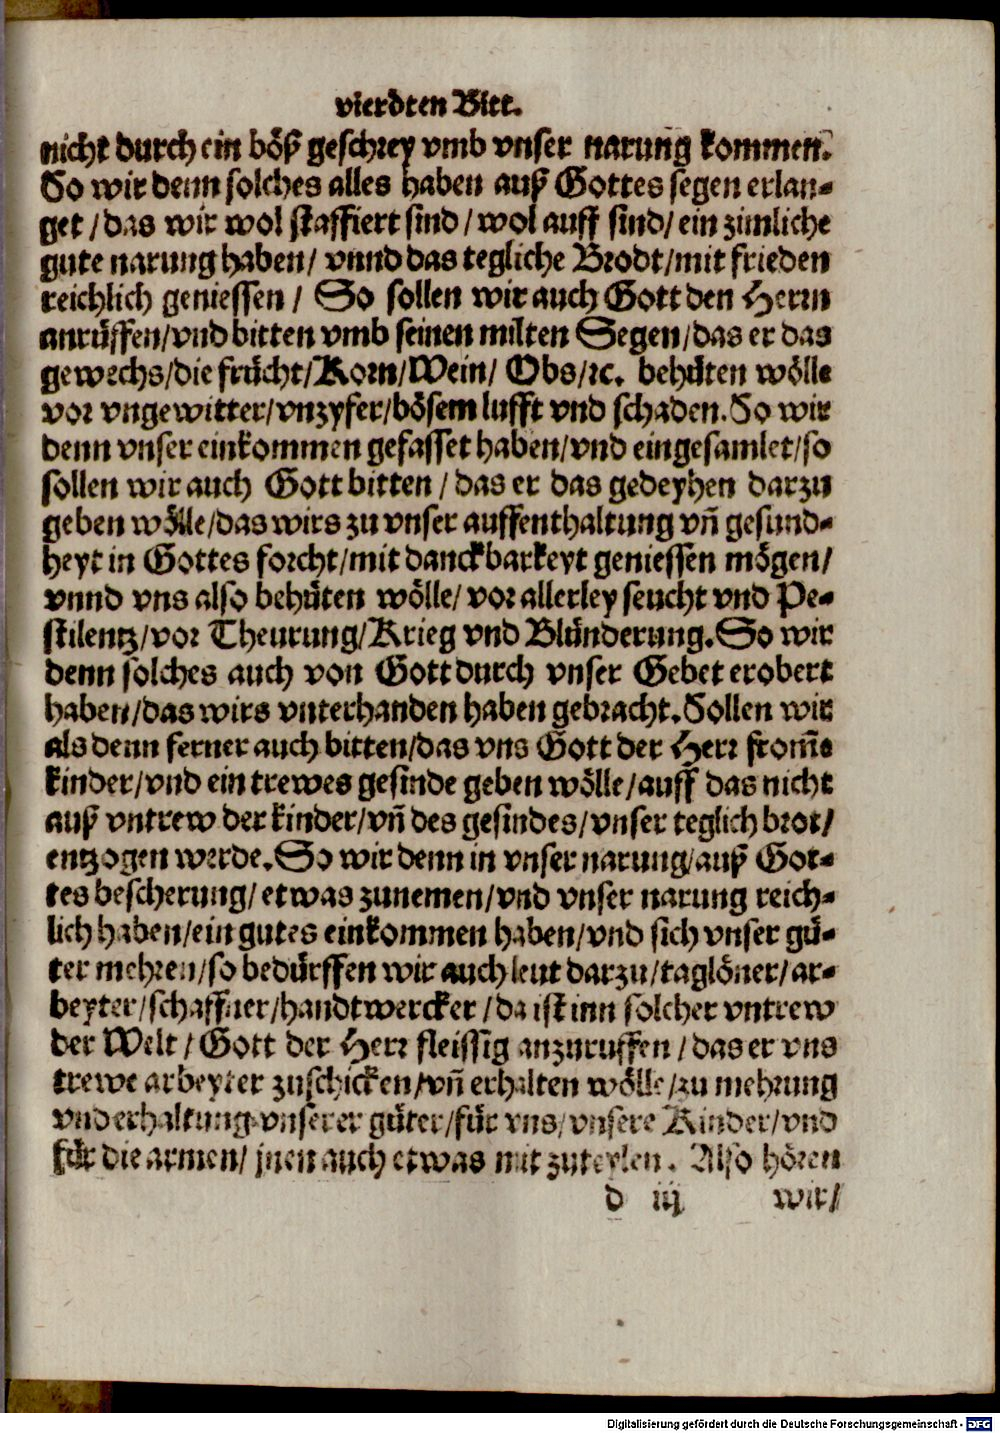 vierdten Bitt.
nicht durch ein böß geschrey vmb vnser narung kommen.
So wir denn solches alles haben auß Gottes segen erlan-
get / das wir wol staffiert sind / wol auff sind / ein zimliche
gute narung haben / vnnd das tegliche Brodt / mit frieden
reichlich geniessen / So sollen wir auch Gott den Herrn
anrüffen / vnd bitten vmb seinen milten Segen / das er das
gewechs / die frücht / Korn / Wein / Obs / ꝛc. behüten wölle
vor vngewitter / vnzyfer / bösem lufft vnd schaden. So wir
denn vnser einkommen gefasset haben / vnd eingesamlet / so
sollen wir auch Gott bitten / das er das gedeyhen darzu
geben wölle / das wirs zu vnser auffenthaltung vñ gesund-
heyt in Gottes forcht / mit danckbarkeyt geniessen mögen /
vnnd vns also behüten wölle / vor allerley seucht vnd Pe-
stilentz / vor Theurung / Krieg vnd Blünderung. So wir
denn solches auch von Gott durch vnser Gebet erobert
haben / das wirs vnterhanden haben gebracht. Sollen wir
als denn ferner auch bitten / das vns Gott der Herr from̃e
kinder / vnd ein trewes gesinde geben wölle / auff das nicht
auß vntrew der kinder / vñ des gesindes / vnser teglich brot /
entzogen werde. So wir denn in vnser narung / auß Got-
tes bescherung / etwas zunemen / vnd vnser narung reich-
lich haben / ein gutes einkommen haben / vnd sich vnser gü-
ter mehren / so bedürffen wir auch leut darzu / taglöner / ar-
beyter / schaffner / handtwercker / da ist inn solcher vntrew
der Welt / Gott der Herr fleissig anzuruffen / das er vns
trewe arbeyter zuschicken / vñ erhalten wölle / zu mehrung
vnd erhaltung vnserer güter / für vns / vnsere Kinder / vnd
für die armen / jnen auch etwas mit zuteylen. Also hören
d iij wir /
Digitalisierung gefördert durch die Deutsche Forschungsgemeinschaft - DFG